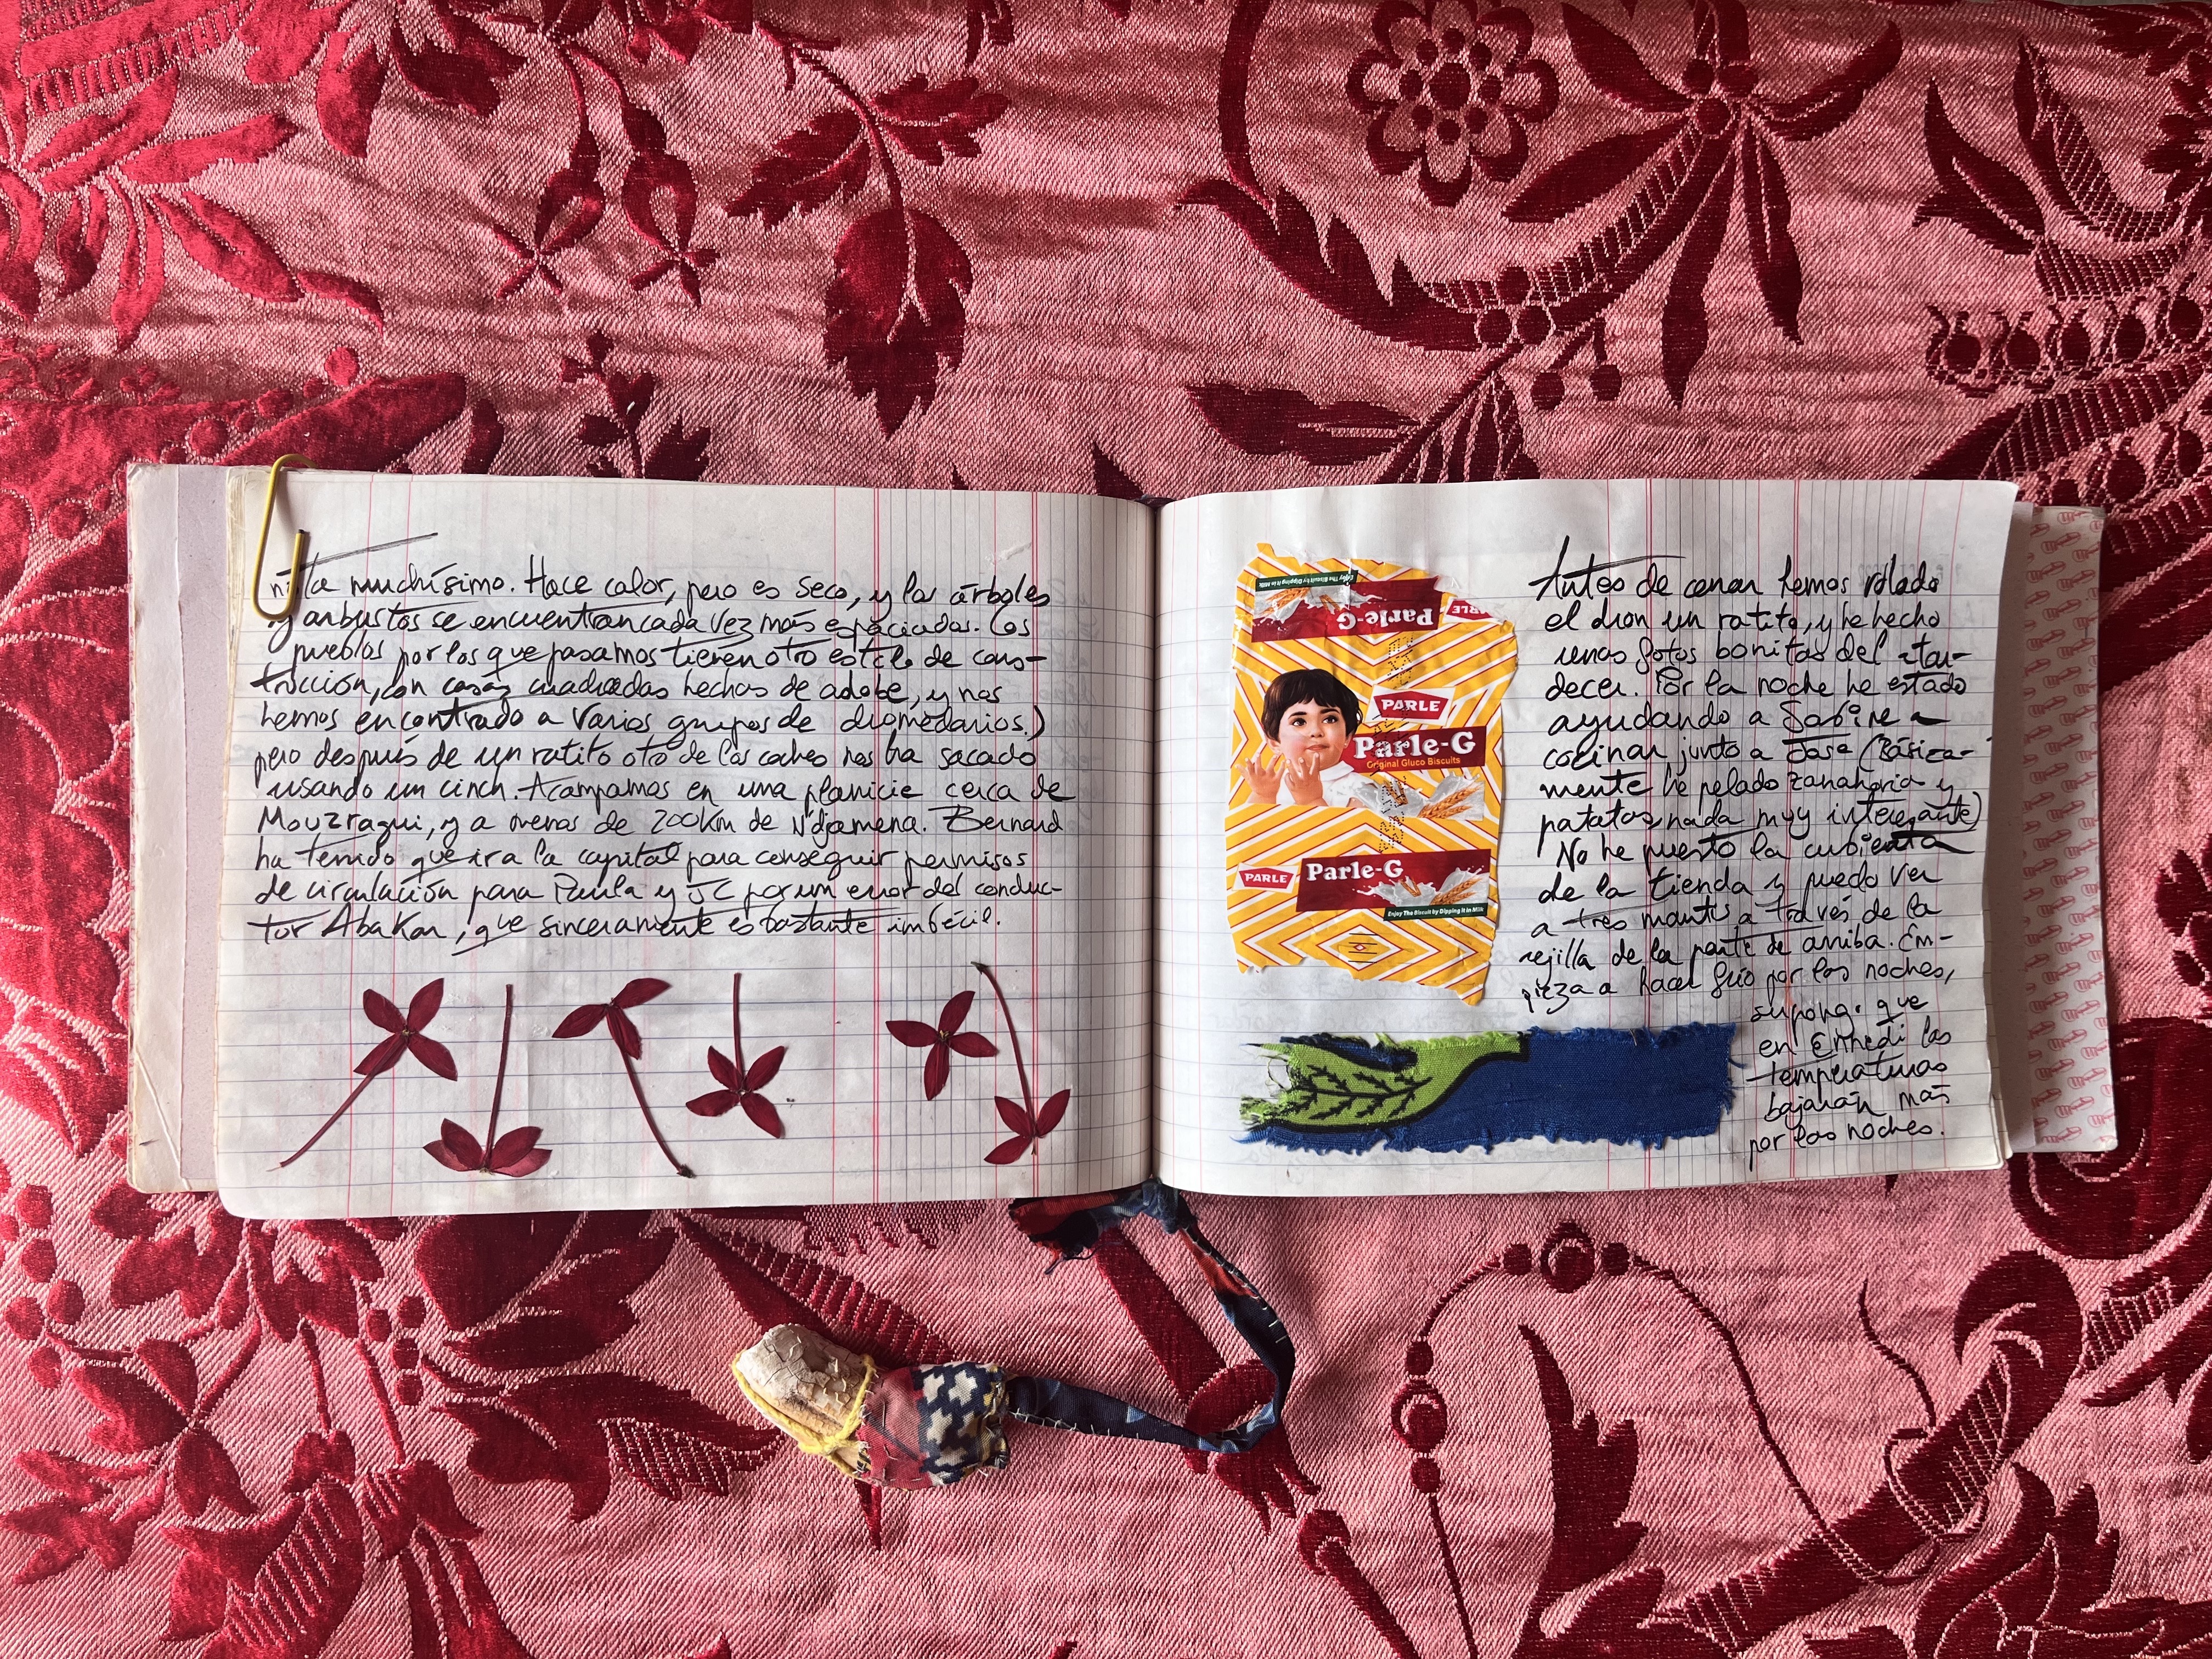 nita muchísimo. Hace calor, pero es seco, y los árboles
y arbustos se encuentran cada vez más espaciados. Los
pueblos por los que pasamos tienen otro estilo de cons-
trucción, con casas cuadradas hechas de adobe, y nos
hemos encontrado a varios grupos de dromedarios.)
pero después de un ratito otro de los coches nos ha sacado
usando un cinch. Acampamos en una planicie cerca de
Mouzragui, y a menos de 200km de N'djamena. Bernard
ha tenido que ir a la capital para conseguir permisos
de circulación para Paula y JC por un error del conduc-
tor Abakar, que sinceramente es bastante imbécil.
Enjoy The Biscuit by Dipping it in Milk
Parle-G
PARLE
PARLE
Parle-G
Original Gluco Biscuits
PARLE
Parle-G
Enjoy The Biscuit by Dipping it in Milk
Antes de cenar hemos volado
el dron un ratito, y he hecho
unas fotos bonitas del atar-
decer. Por la noche he estado
ayudando a Sabine a
cocinar junto a Jose (Básica-
mente he pelado zanahoria y
patatas, nada muy interesante)
No he puesto la cubierta
de la tienda y puedo ver
a tres mantis a través de la
rejilla de la parte de arriba. Em-
pieza a hacer frío por las noches,
supongo que
en Ennedi las
temperaturas
bajarán más
por las noches.